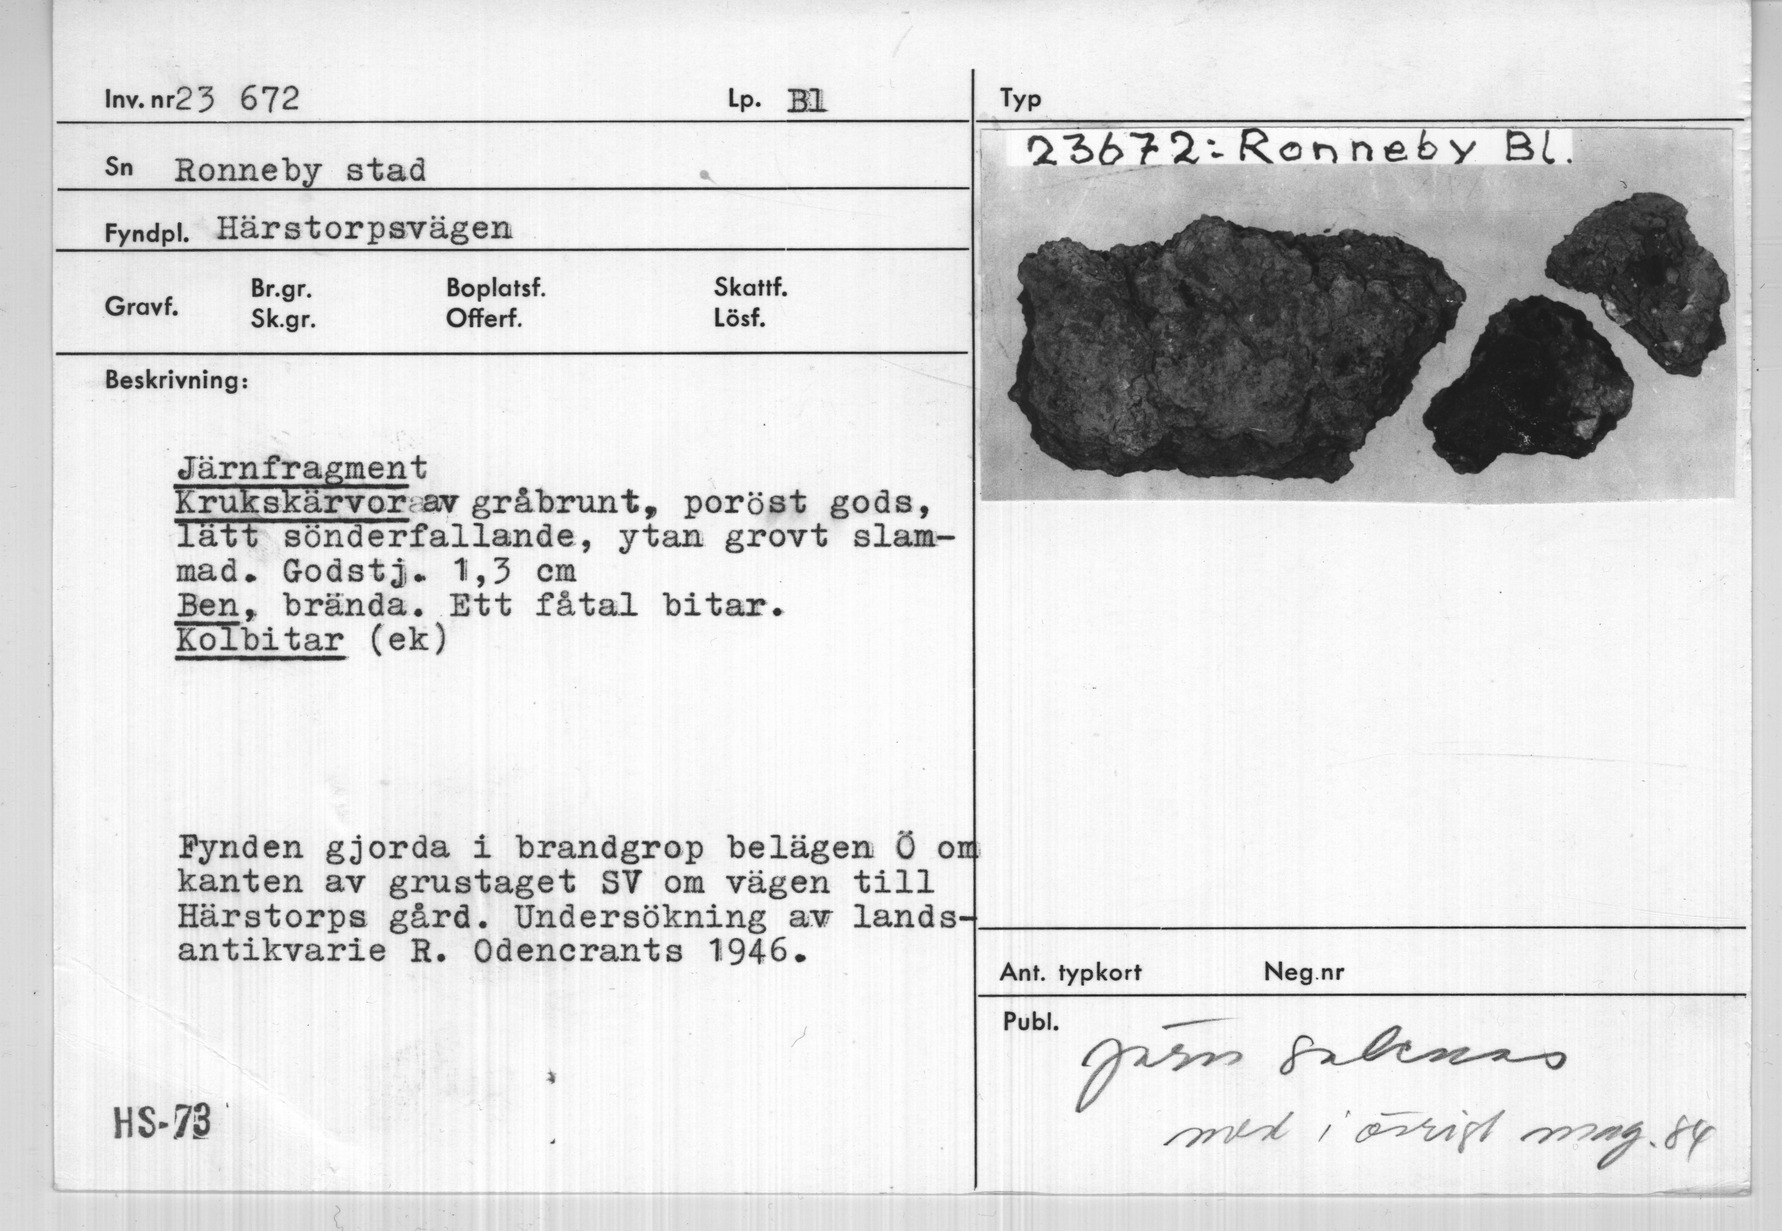 Inv. nr 23 672 Lp. Bl
Sn Ronneby stad
Fyndpl. Härstorpsvägen
Gravf. Br.gr. Boplatsf. Skattf.
Sk.gr. Offerf. Lösf.
Beskrivning:
Järnfragment
Krukskärvor av gråbrunt, poröst gods,
lätt sönderfallande, ytan grovt slam-
mad. Godstj. 1,3 cm
Ben, brända. Ett fåtal bitar.
Kolbitar (ek)
Fynden gjorda i brandgrop belägen Ö om
kanten av grustaget SV om vägen till
Härstorps gård. Undersökning av lands-
antikvarie R. Odencrants 1946.
HS-73
Typ
23672:- Ronneby Bl.
Ant. typkort Neg.nr
Publ.
Järn saknas
i övrigt mag. 84